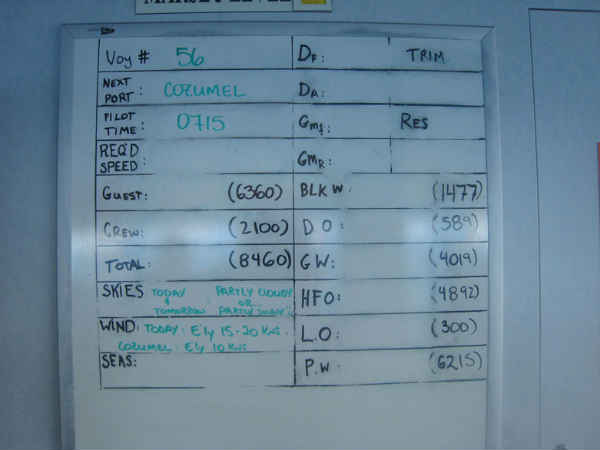 Voy # 56 DF: TRIM
NEXT PORT: COZUMEL DA:
PILOT TIME: 0715 GMf: RES
REQ'D SPEED: GMR:
GUEST: (6360) BLK W: (1477)
CREW: (2100) D O: (589)
TOTAL: (8460) GW: (4019)
SKIES TODAY & TOMORROW PARTLY CLOUDY OR PARTLY SUNNY HFO: (4892)
WIND: TODAY: E'ly 15-20 Kts. L.O: (300)
COZUMEL: E'ly 10 Kts
SEAS: P.W: (6215)